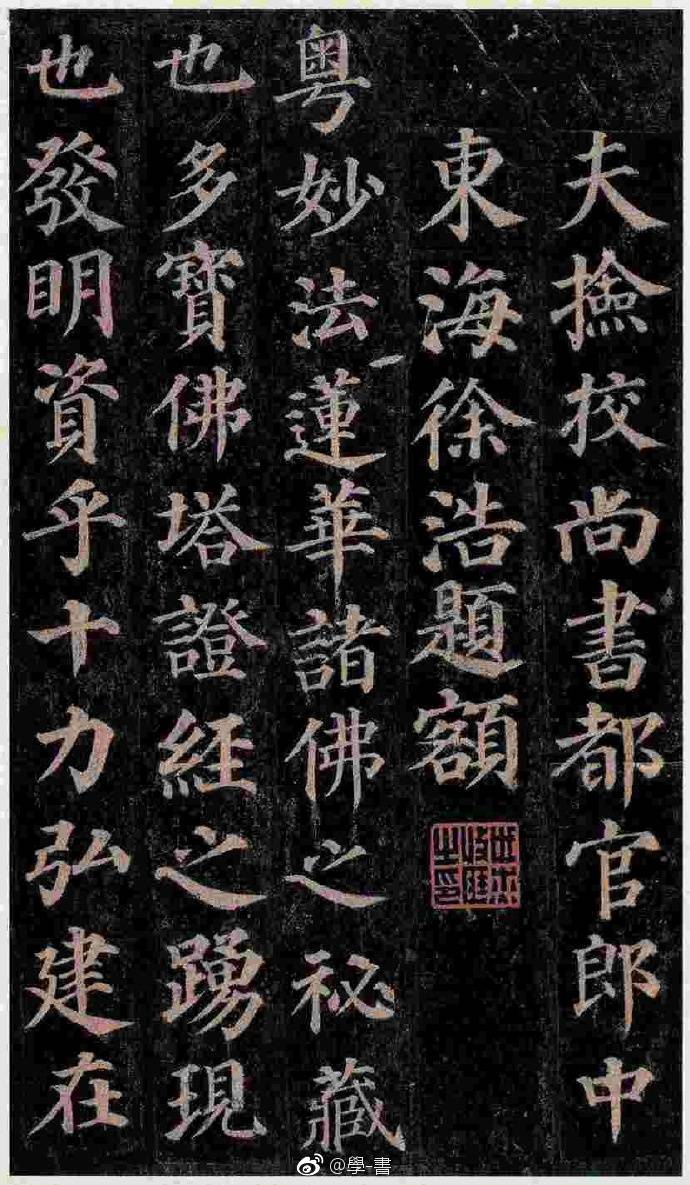 夫撿挍尚書都官郎中
東海徐浩題額
粤妙法蓮華諸佛之祕藏
也多寶佛塔證經之踴現
也發明資乎十力弘建在
@學-書